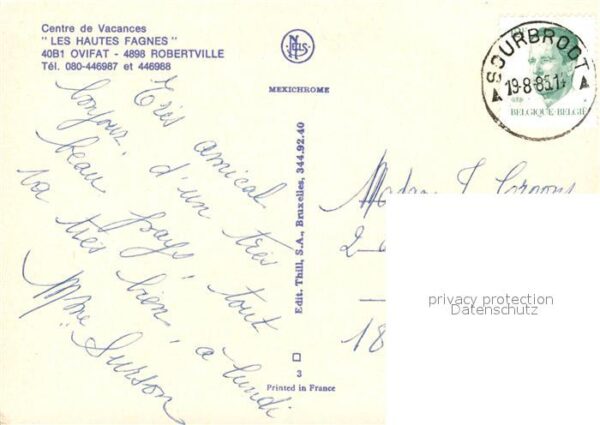 Centre de Vacances
" LES HAUTES FAGNES "
40B1 OVIFAT - 4898 ROBERTVILLE
Tél. 080-446987 et 446988
NELS
MEXICHROME
Très amical
bonjour, d'un très
beau pays, tout
va très bien, à lundi
Mme Surson
Edit. Thill, S.A., Bruxelles, 344.92.40
3
Printed in France
SOURBRODT
19-8-85.1
BELGIQUE-BELGIË
Madam J.
2
18
privacy protection
Datenschutz